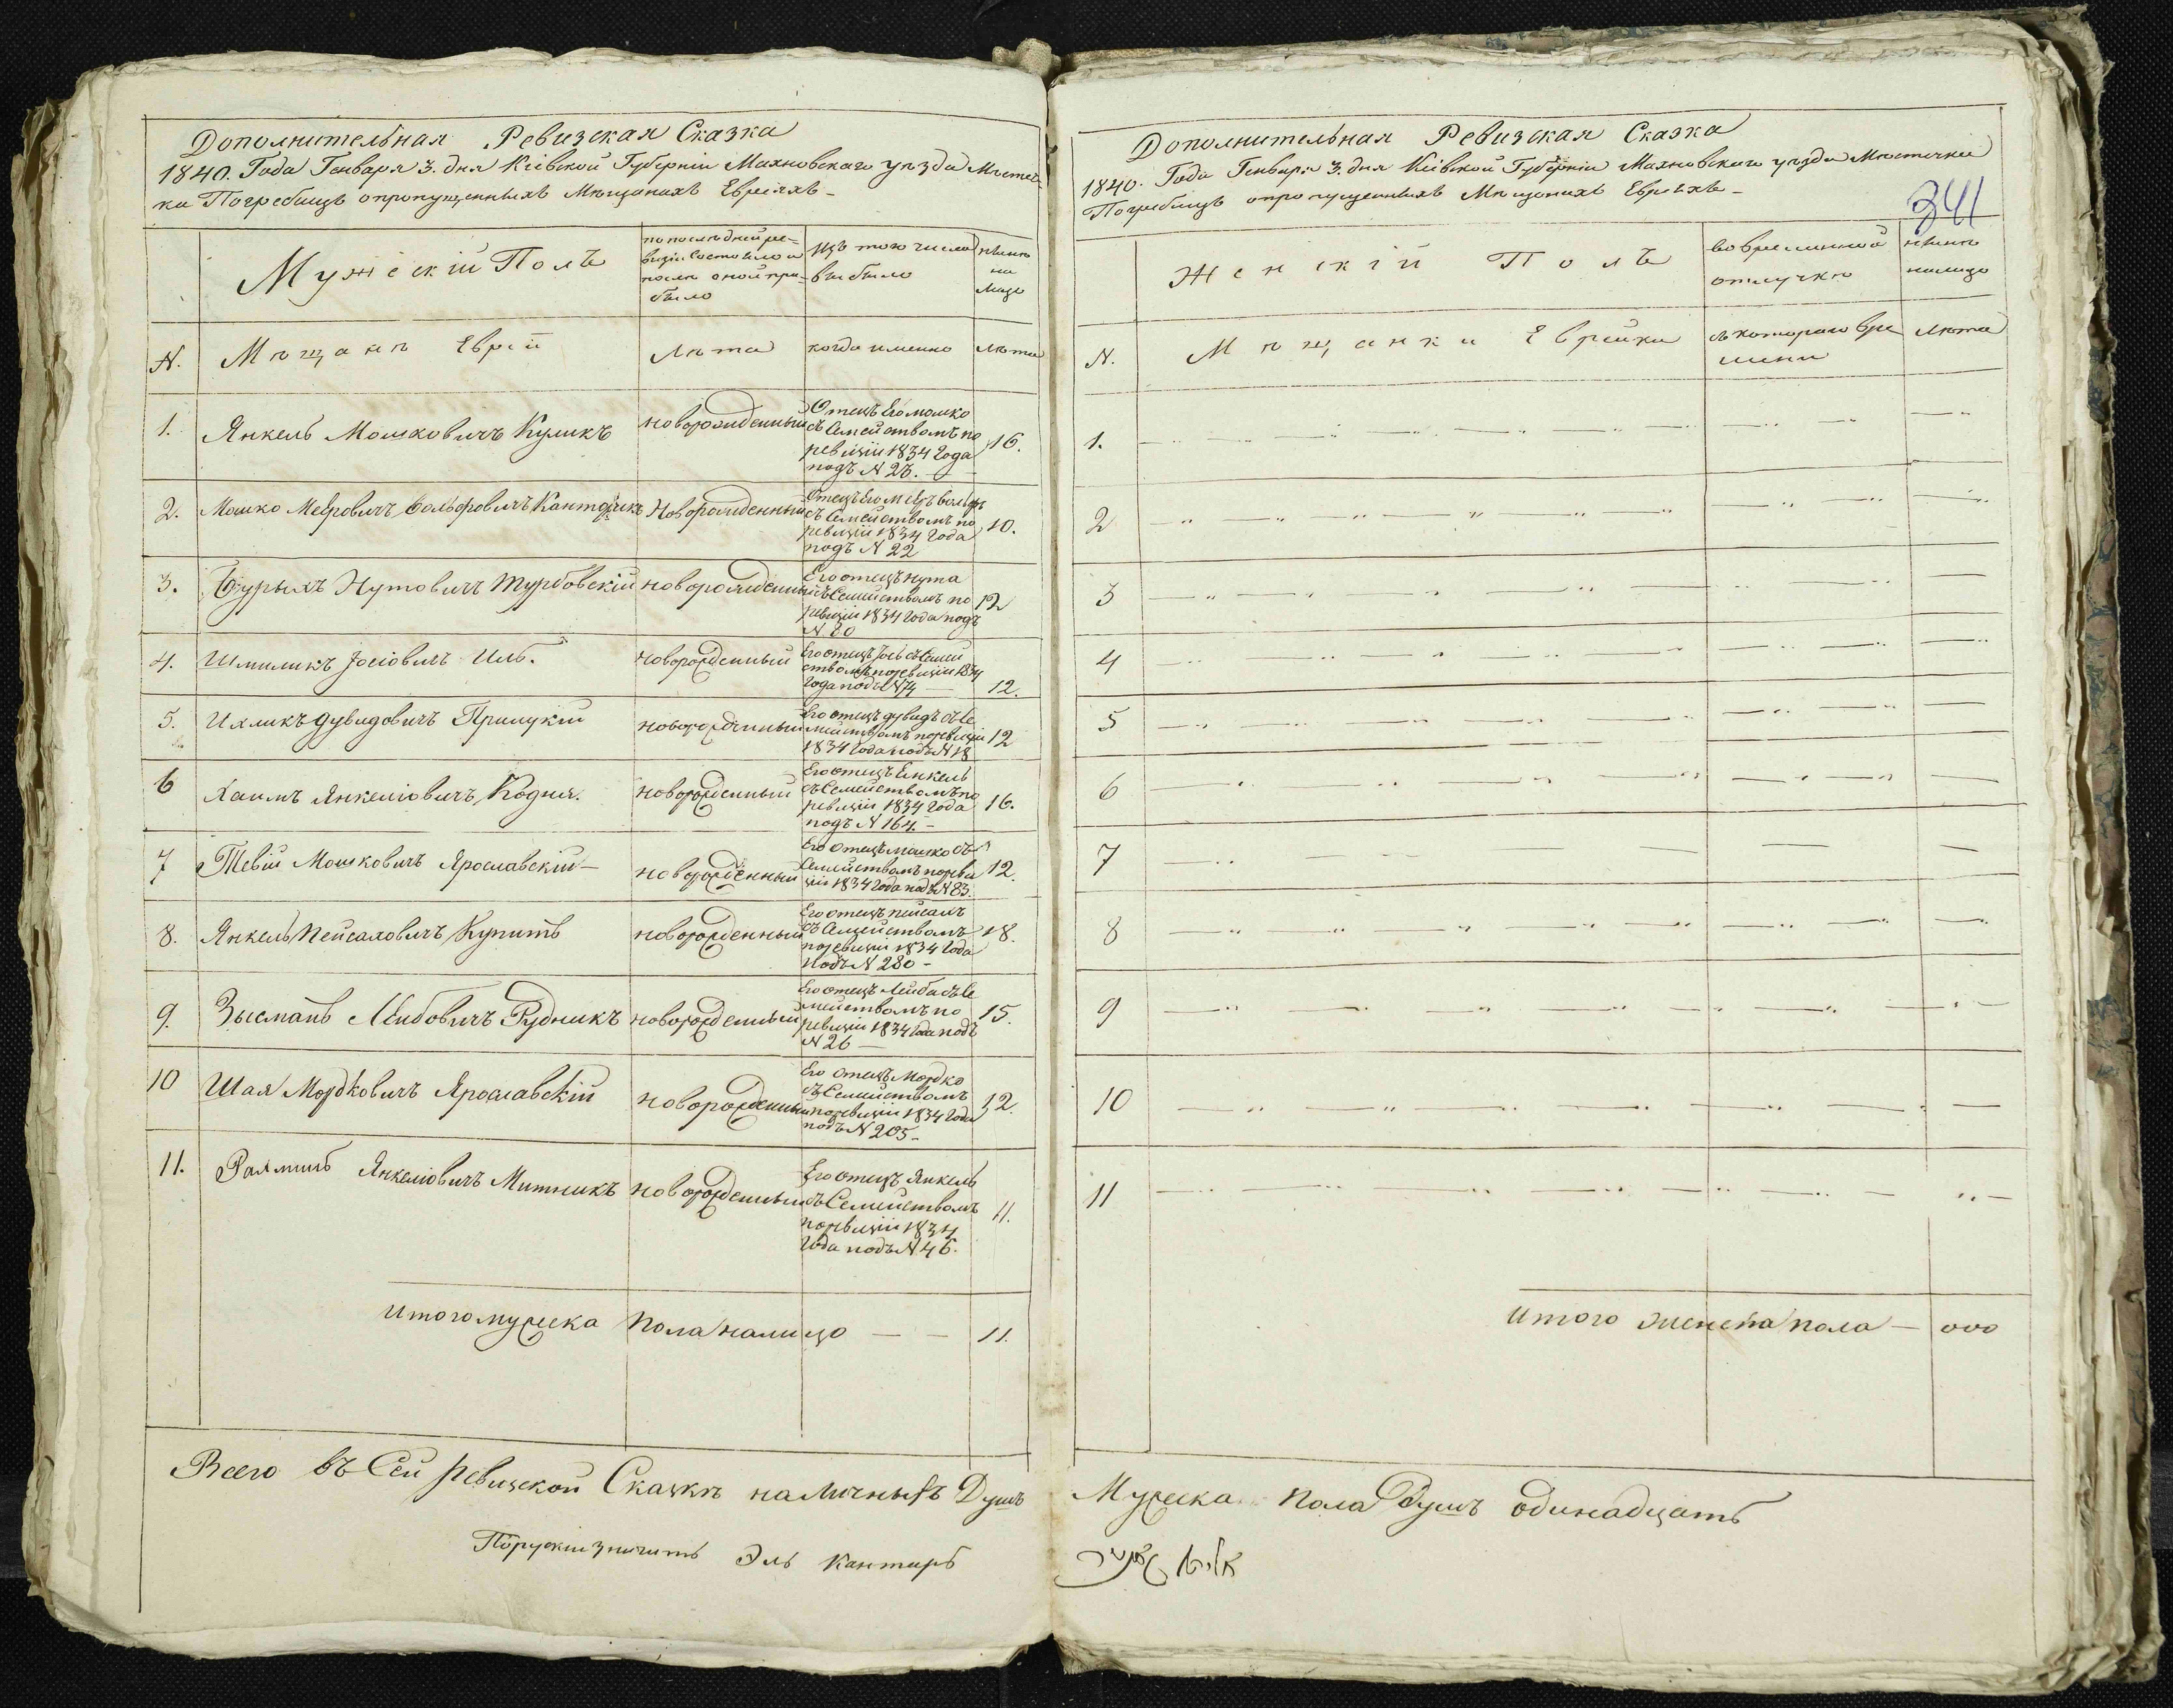 Дополнительная Ревизская Сказка
1840. Года Генваря 3. дня Кіевской Губерніи Махновскаго уѣзда Мѣстеч-
ка Погребищъ о пропущенныхъ Мѣщанахъ Евреяхъ -
Мужескій Полъ
по последней ре-
визіи состояло и
после оной при-
было
Изъ того числа
выбыло
нынѣ
на
лицо
N.
Мѣщане Евреи
Лѣта
когда именно
Лѣта
1.
Янкель Мошковичъ Куликъ
новорожденный
Отецъ Его мошко
съ Семействомъ по
ревизіи 1834 Года
подъ N 23. -
16.
2.
Мошко Меeровичъ Вольфовичъ Канторикъ
Новорожденный
Отецъ Его Меeръ вольфъ
съ Семействомъ по
ревизіи 1834 Года
подъ N 22
10.
3.
Бурыхъ Нутовичъ Турбовскій
новорожденный
Его отецъ нута
съ Семействомъ по
ревизіи 1834 Года подъ
N 80
12
4.
Шмиликъ Іосіовичъ Иль.
новорожденный
Его отецъ Іось съ Семей
ствомъ по ревизіи 1834
Года подъ N 74 —
12.
5.
Ихликъ Дувидовичъ Прилуцкій
новорожденный
Его отецъ дувидъ съ Се
мействомъ по ревизіи
1834 Года подъ N 18
12
6
Хаимъ Янкеліовичъ Кодня.
новорожденный
Его отецъ Енкель
съ Семействомъ по
ревизіи 1834 Года
подъ N 164. -
16.
7
Тевій Мошковичъ Ярославскій -
новорожденный
Его отецъ мошко съ
Семействомъ по реви
зіи 1834 Года подъ N 83.
12.
8.
Янкель Пейсаховичъ Купитъ
новорожденный
Его отецъ пейсахъ
съ Семействомъ
по ревизіи 1834 Года
подъ N 280 -
18.
9.
Зысманъ Лейбовичъ Рудникъ
новорожденный
Его отецъ Лейба съ Се
мействомъ по
ревизіи 1834 Года подъ
N 26 —
15.
10
Шая Мордковичъ Ярославскій
новорожденный
Его отецъ Мордко
съ Семействомъ
по ревизіи 1834 Года
подъ N 205 -
12.
11.
Янкеліовичъ Митникъ
новорожденный
Его отецъ Янкель
съ Семействомъ
по ревизіи 1834
Года подъ N 46.
11.
Итого мужеска пола налицо — — 11.
Всего въ Сей ревизской Сказкѣ наличныхъ Душъ
Поруски значитъ Эль Кантаръ
Дополнительная Ревизская Сказка
1840. Года Генваря 3. дня Кіевской Губерніи Махновскаго уѣзда Мѣстечка
Погребищъ о пропущенныхъ Мѣщанахъ Евреяхъ -
341
Женскій Полъ
во временной
отлучке
нынѣ
налицо
N.
Мѣщанки Еврейки
съ котораго вре
мени
Лѣта
1.
2
3
4
5
6
7
8
9
10
11
Итого женска пола — 000
Мужеска пола Душъ одинадцать